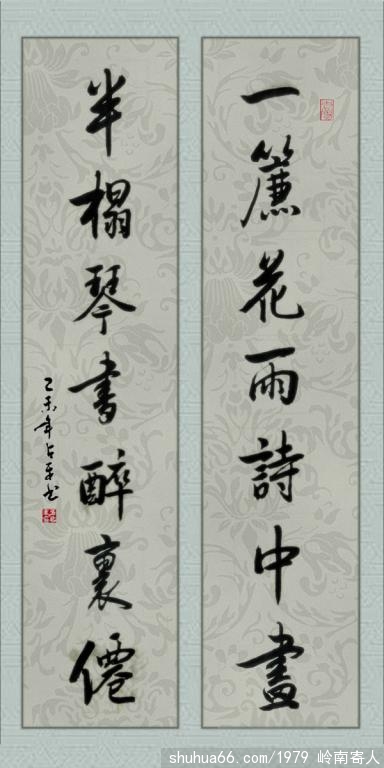 一簾花雨詩中畫
半榻琴書醉裏僊
乙未年
shuhua66.com/1979 岭南寄人